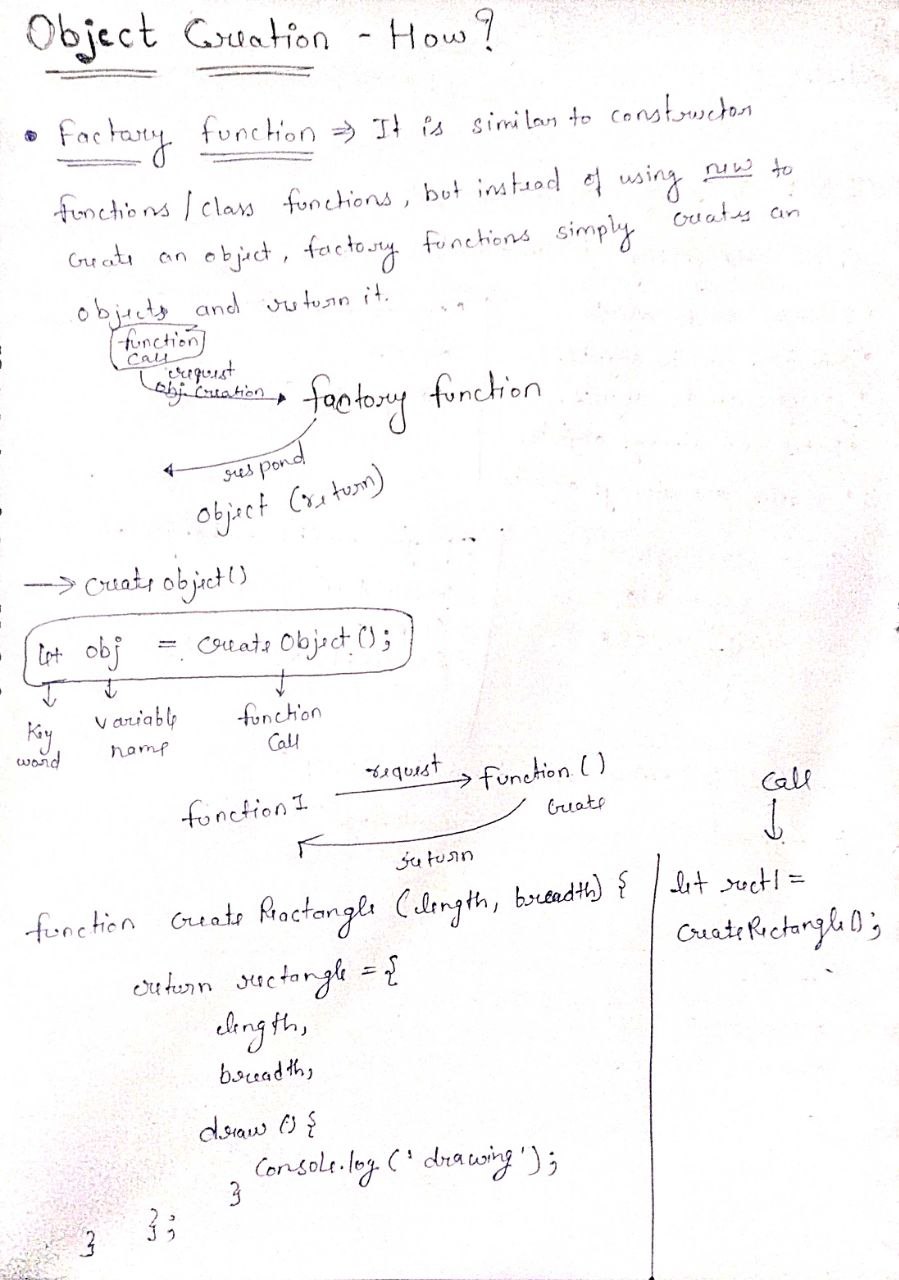 Object Creation - How?
• Factory function ⇒ It is similar to constructor
functions / class functions, but instead of using new to
create an object, factory functions simply creates an
objects and return it.
function
call
request
obj. creation
factory function
respond
object (return)
→ create object()
let obj = create Object ();
Key
word
variable
name
function
call
function 1
request
function ()
create
return
call
function create Rectangle (length, breadth) {
let rect1 =
create Rectangle ();
return rectangle = {
length,
breadth,
draw () {
console.log (' drawing ');
}
};
}